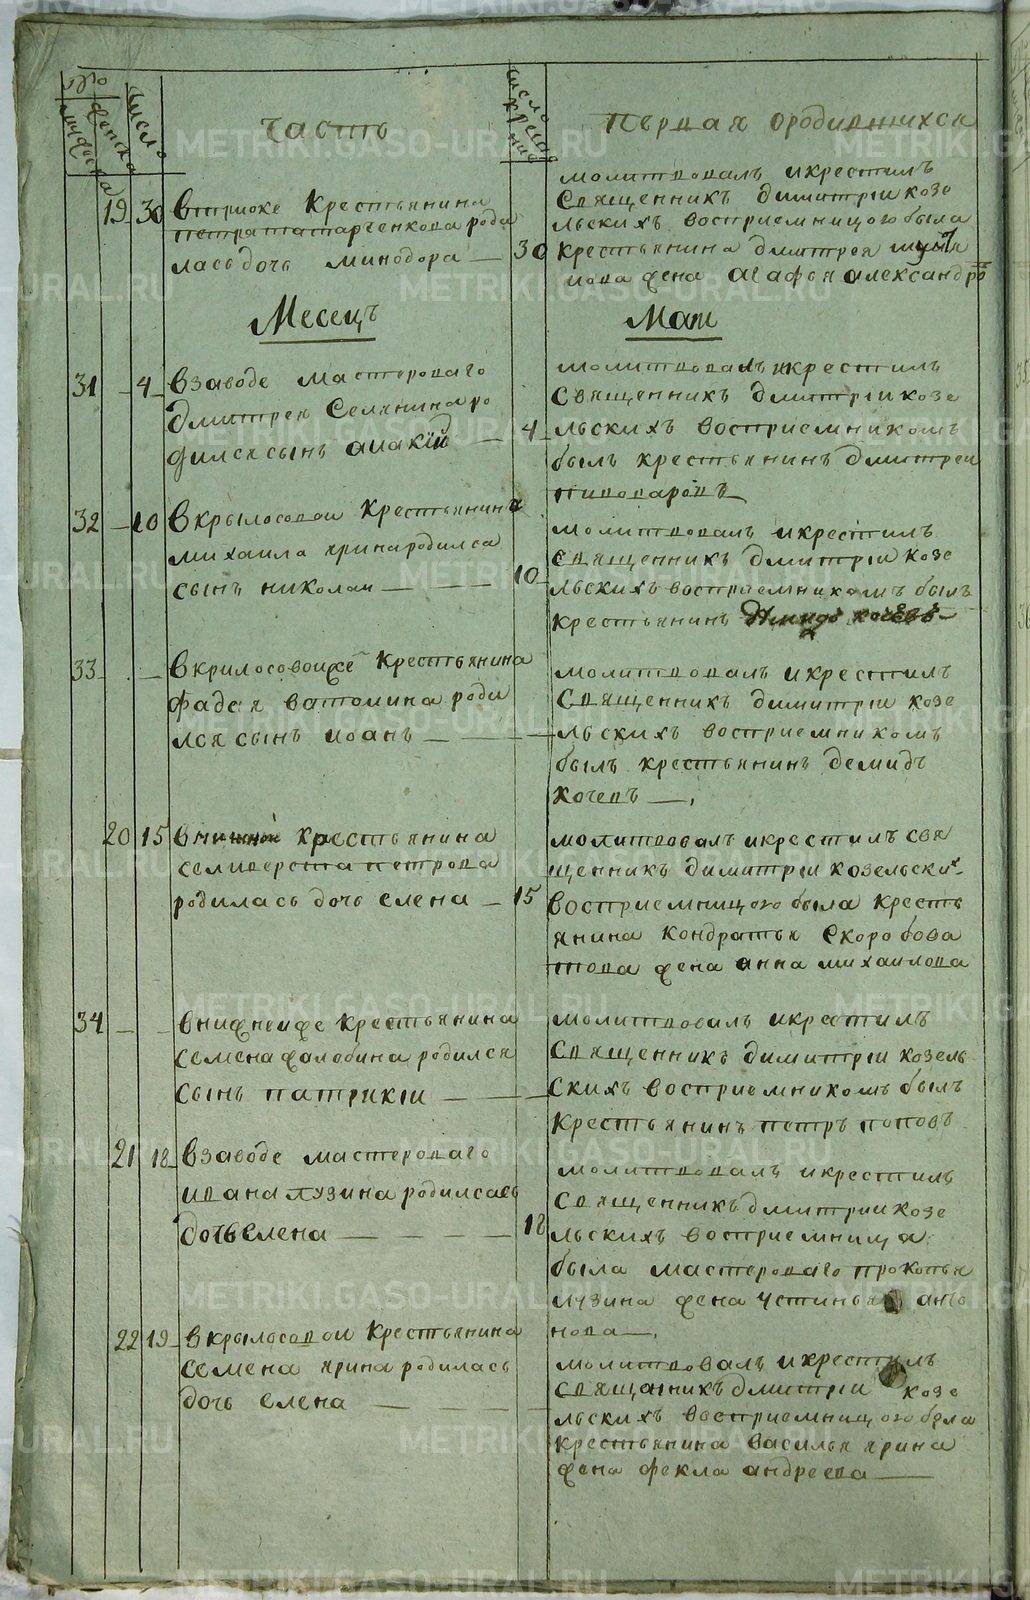 Часть
Первая о родившихся
число
19 30 Втриоке Крестьянина
Петра татарченкова роди
лась дочь минодора
30
молитвовалъ икрестилъ
Священникъ димитріи козе
льскихъ восприемницою была
крестьянина дмитрея
жена агафья александро
Месецъ
Маи
31 4 Взаводе мастероваго
дмитрея Селянина ро
дился сынъ акакій
4
молитвовалъ икрестилъ
Священникъ дмитріи козе
льскихъ восприемникомъ
былъ крестьянинъ дмитреи
пивоваровъ
32 10 Вкрылосовои Крестьянина
михаила ярина родился
сынъ николаи
10
молитвовалъ икрестилъ
Священникъ димитріи козе
льскихъ восприемникомъ былъ
крестьянинъ демидъ кочевъ
33 Вкрилосовоиже Крестьянина
фадея ватолина роди
лся сынъ иоанъ
молитвовалъ икрестилъ
Священникъ димитріи козе
льскихъ восприемникомъ
былъ крестьянинъ демидъ
кочевъ
20 15 Внижнои крестьянина
селиверста петрова
родилась дочь елена
15
молитвовалъ икрестилъ свя
щенникъ димитріи козельских
восприемницою была кресть
янина кондратья скоробова
това жена анна михаилова
34 внижнеиже крестьянина
семена жалобина родился
сынъ патрикіи
молитвовалъ икрестилъ
Священникъ димитріи козель
скихъ восприемникомъ былъ
крестьянинъ петръ поповъ
21 18 Взаводе мастероваго
ивана лузина родилсась
дочь елена
18
молитвовалъ икрестилъ
Священникъ дмитрии козе
льскихъ восприемница
была мастероваго прокопья
лузина жена устинья анто
нова
22 19 Вкрыльсовои Крестьянина
семена ярина родилась
дочь елена
молитвовалъ икрестилъ
священникъ дмитріи козе
льскихъ восприемницою была
крестьянина василья ярина
жена фекла андреева
METRIKI.GASO-URAL.RU